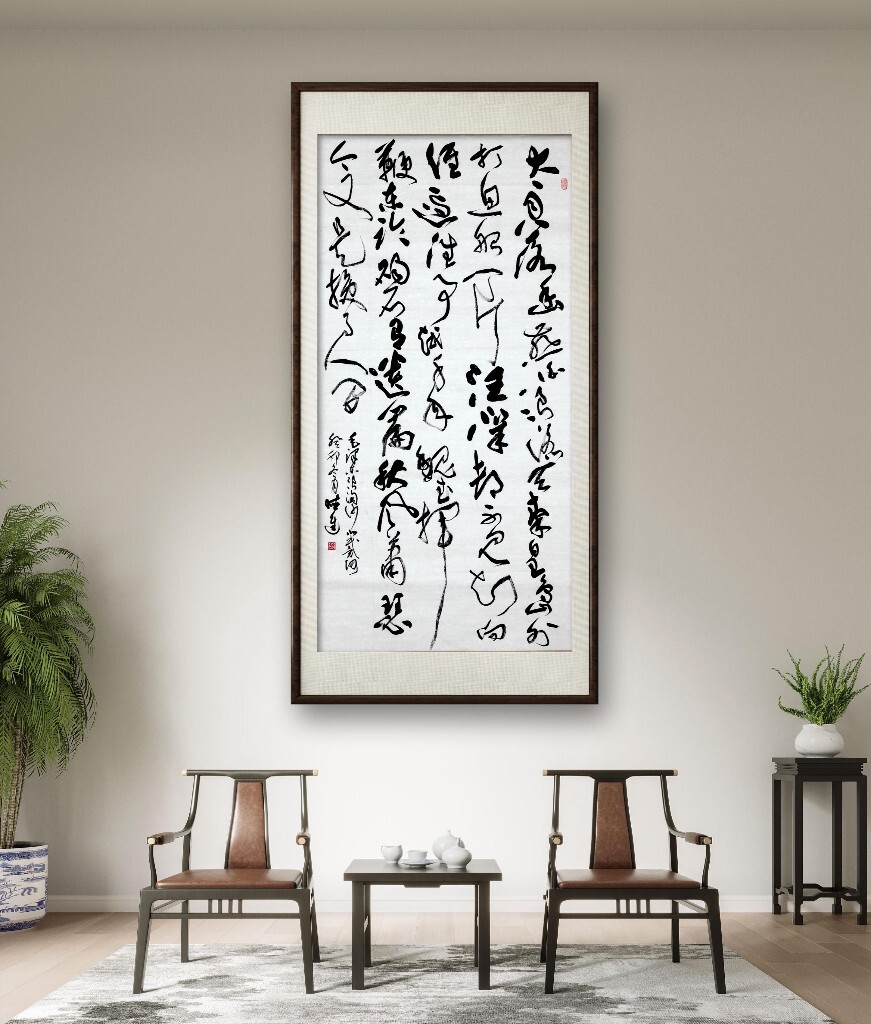 大雨落幽燕白浪滔天秦皇岛外
打鱼船一片汪洋都不见知向
谁边往事越千年魏武挥
鞭东临碣石有遗篇秋风萧瑟
今又是换了人间
毛泽东浪淘沙北戴河
癸卯冬月